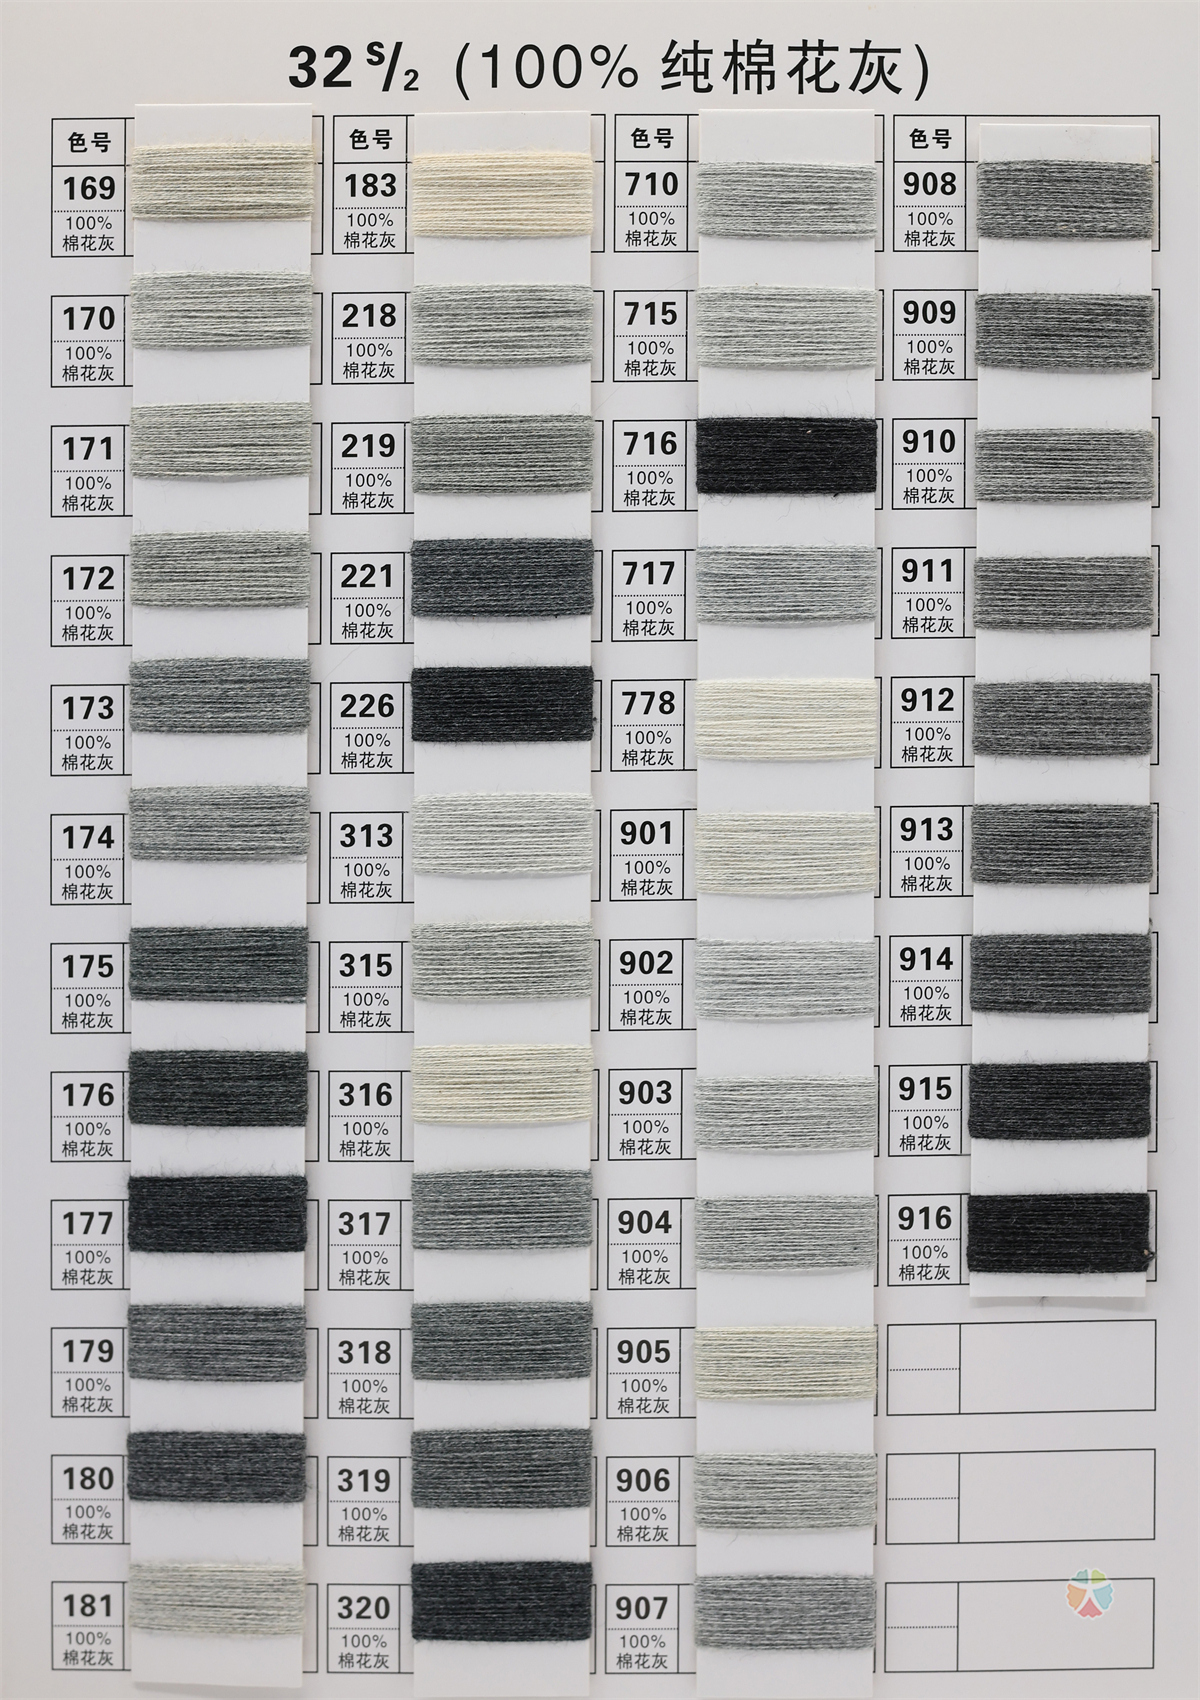 32 S/2 (100% 纯棉花灰)
色号
169
100%
棉花灰
170
100%
棉花灰
171
100%
棉花灰
172
100%
棉花灰
173
100%
棉花灰
174
100%
棉花灰
175
100%
棉花灰
176
100%
棉花灰
177
100%
棉花灰
179
100%
棉花灰
180
100%
棉花灰
181
100%
棉花灰
色号
183
100%
棉花灰
218
100%
棉花灰
219
100%
棉花灰
221
100%
棉花灰
226
100%
棉花灰
313
100%
棉花灰
315
100%
棉花灰
316
100%
棉花灰
317
100%
棉花灰
318
100%
棉花灰
319
100%
棉花灰
320
100%
棉花灰
色号
710
100%
棉花灰
715
100%
棉花灰
716
100%
棉花灰
717
100%
棉花灰
778
100%
棉花灰
901
100%
棉花灰
902
100%
棉花灰
903
100%
棉花灰
904
100%
棉花灰
905
100%
棉花灰
906
100%
棉花灰
907
100%
棉花灰
色号
908
100%
棉花灰
909
100%
棉花灰
910
100%
棉花灰
911
100%
棉花灰
912
100%
棉花灰
913
100%
棉花灰
914
100%
棉花灰
915
100%
棉花灰
916
100%
棉花灰